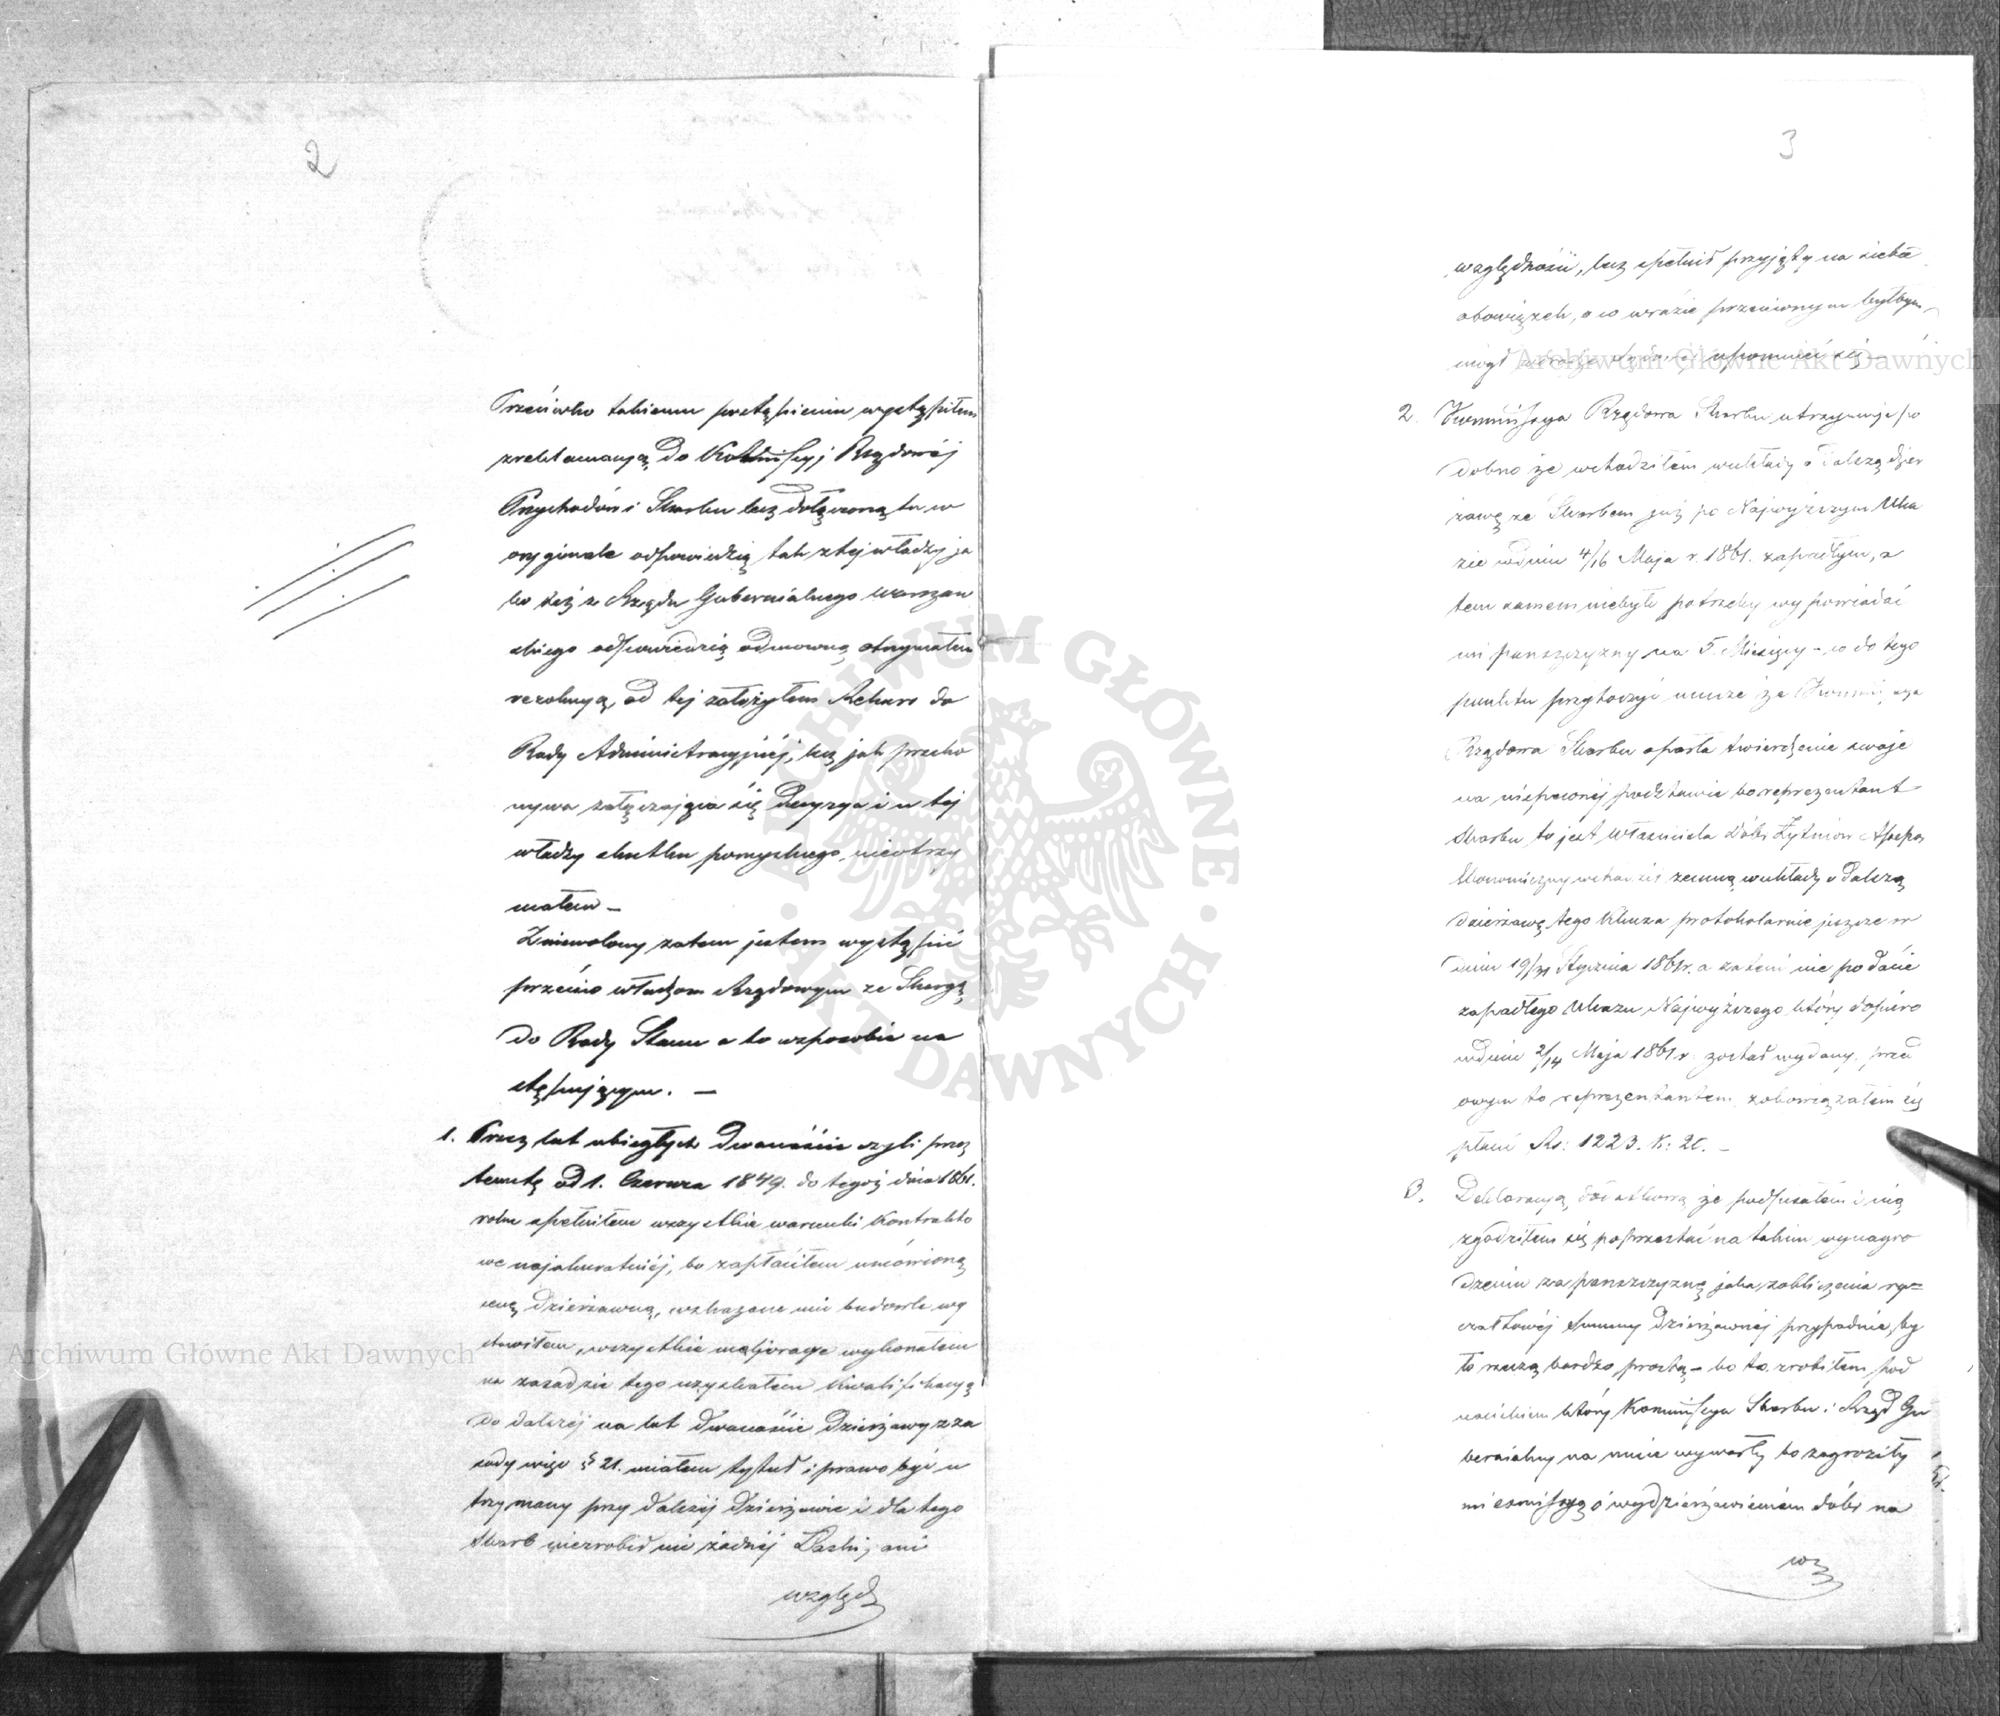 2
Przeciwko takiemu postąpieniu wystąpiłem
z reklamacyją do Kommissyj Rządowéj
Przychodów i Skarbu lecz dołączoną tu w
oryginale odpowiedzią tak z tej władzy ja
ko też z Rządu Gubernialnego Warszaw
skiego odpowiedzią odmowną otrzymałem
rezolucyą, od tej założyłem Rekurs do
Rady Administracyjnéj, lecz jak przeko
nywa załączająca się Decyzya i w tej
władzy skutku pomyslnego nieotrzy
małem –
Zniewolony zatem jestem wystąpić
przeciw władzom Rządowym ze Skargą
do Rady Stanu a to w sposobie na
stępującym. –
1. Przez lat ubiegłych Dwanaście czyli przez
tenutę od 1. Czerwca 1849. do tegoż dnia 1861.
roku spełniłem wszystkie warunki Kontrakto
we najakuratniéj, bo zapłaciłem umówioną
cenę Dzierżawną, wskazane mi budowle wy
stawiłem, wszystkie melioracye wykonałem
na zasadzie tego uzyskałem Kwalifikacyą
do dalszéj na lat Dwanaście Dzierżawy z za
sady więc § 21. miałem tytuł i prawo być u
trzymany przy Dalszéj Dzierżawie i dla tego
Skarb niezrobił mi żadnéj Łaski, ani
względ
3
względności, lecz spełnił przyjęty na siebie
obowiązek, o co w razie przeciwnym byłbym
mógł upomnieć się –
2. Kommissya Rządowa Skarbu utrzymuje po
dobno że wchodziłem w układy o Dalszą dzier
żawę ze Skarbem już po Najwyższym Uka
zie w dniu 4/16 Maja r. 1861. zapadłym, a
tem samem niebyło potrzeby wypowiadać
mi pańszczyzny na 5. Miesięcy – co do tego
punktu przytoczyć muszę że Kommissya
Rządowa Skarbu oparła twierdzenie swoje
na niepewnéj podstawie bo reprezentant
Skarbu to jest Właściciela Dóbr Żytniów Assessor
Ekonomiczny wchodził zemną w układy o Dalszą
Dzierżawę tego Klucza protokolarnie jeszcze w
dniu 19/31 Stycznia 1861 r. a zatem nie po dacie
zapadłego Ukazu Najwyższego, który dopiéro
w dniu 2/14 Maja 1861 r. został wydany, przed
owym to reprezentantem zobowiązałem się
płacić Rs: 1223. K: 20. –
3. Deklaracyą dodatkową że podpisałem i nią
zgodziłem się poprzestać na takim wynagro
dzeniu za pańszczyznę jaka z obliczenia ry=
czałtowéj Summy Dzierżawnéj przypadnie, by
ło rzeczą bardzo prostą – bo to zrobiłem pod
naciskiem który Kommissya Skarbu i Rząd Gu
bernialny na mnie wywarły bo zagroziły
mi o wydzierżawieniem dóbr na
Archiwum Główne Akt Dawnych
Archiwum Główne Akt Dawnych
ARCHIWUM GŁÓWNE · AKT DAWNYCH ·